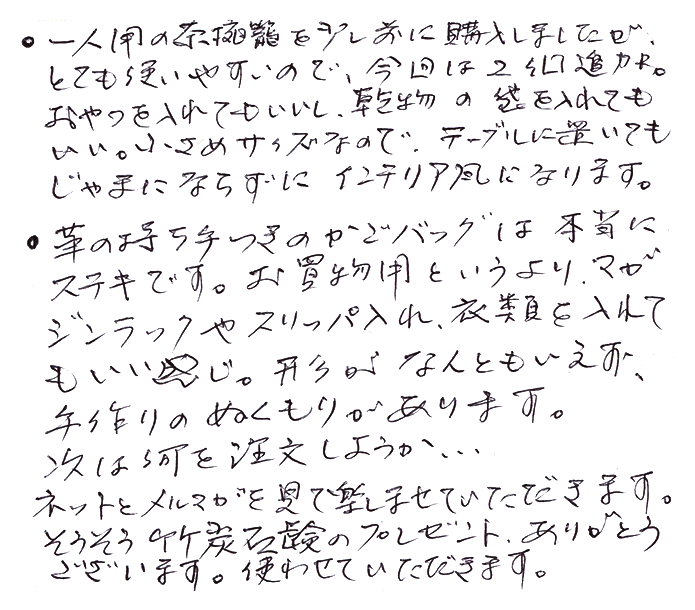 • 一人用の茶碗籠を少し前に購入しましたが、
とても使いやすいので、今回は2個追加。
おやつを入れてもいいし、乾物の袋を入れても
いい。小さめサイズなので、テーブルに置いても
じゃまにならずにインテリア風になります。
• 革の持ち手つきのかごバッグは本当に
ステキです。お買物用というより、マガ
ジンラックやスリッパ入れ、衣類を入れて
もいい感じ。形がなんともいえず、
手作りのぬくもりがあります。
次は何を注文しようか、、、
ネットとメルマガを見て楽しませていただきます。
そうそう竹炭石鹸のプレゼント、ありがとう
ございます。使わせていただきます。